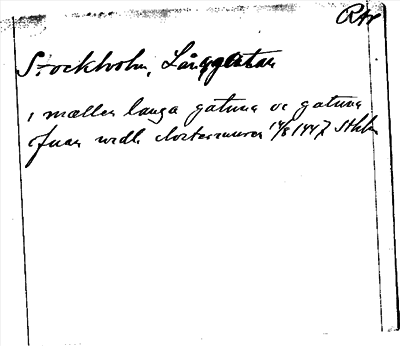 RAp
Stockholm, Långgatan
i mællen langa gatuna oc gatuna
Juan widh closter muren 14/8 1447 Sthlm